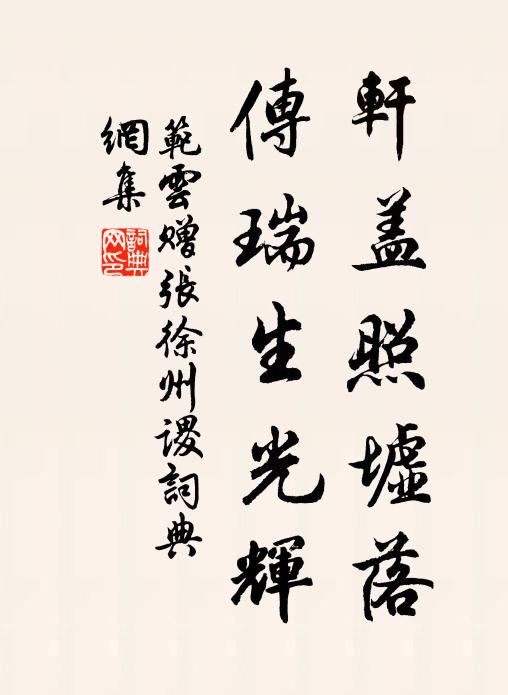 軒盖照墟落
傳瑞生光輝
範雲赠張徐州謖詞典
網集
詞典
网印